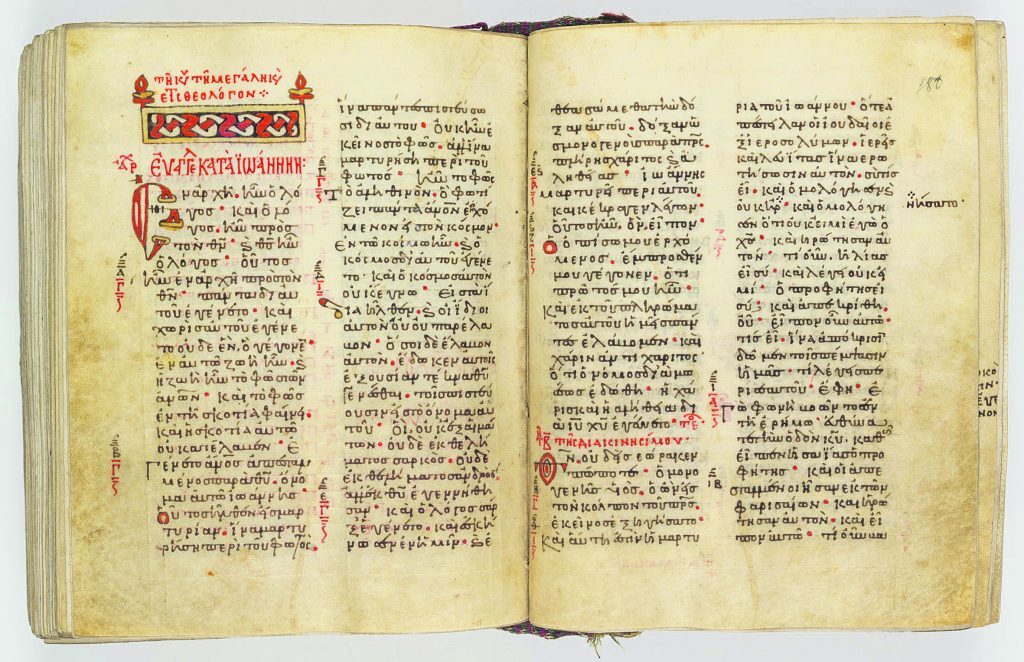 τῆ κυ τῆ μεγάλη κυ
ἐπι θεολόγον
ΕΥΑΓΓΕ ΚΑΤΑ ἸΩΑΝΝΗΝ:
Ἐν ἀρχῆ ἦν ὁ λό
γος· καὶ ὁ λό
γος ἦν πρὸς
τὸν θν· ϛ θς ἦν
ὁ λόγος· οὗτος
ἦν ἐν ἀρχῆ πρὸς τὸν
θν· πάντα δι αυ
τοῦ ἐγένετο· καὶ
χωρὶς αυτοῦ ἐγένε
το οὐδὲ ἕν. ὃ γέγονεν·
ἐν αυτῶ ζωὴ ἦν· ϛ
ἡ ζωὴ ἦν τὸ φῶς τῶν
ανων· καὶ τὸ φῶς
ἐν τῆ σκοτία φαίνει·
καὶ ἡ σκοτία αυτὸ
οὐ κατέλαβεν· ἐ
γένετο ανος ἀπεσταλ
μένος παρὰ θυ· ὄνο
μα αυτῶ ἰωάννης·
Οὗτος ἦλθεν εἰς μαρ
τυρίαν· ἵνα μαρτυ
ρήση περὶ τοῦ φωτός·
ἵνα πάντες πιστεύσω
σι δι αυτοῦ· οὐκ ἦν ἐ
κεῖνος τὸ φῶς· ἀλλ ἵνα
μαρτυρήση περὶ τοῦ
φωτός· ἦν τὸ φῶς
τὸ ἀληθινόν· ὃ φωτί
ζει πάντα ανον ἐρχό
μενον εἰς τὸν κόσμον·
ἐν τῶ κόσμω ἦν· ϛ ὁ
κόσμος δι αυτοῦ ἐγένε
το· καὶ ὁ κόσμος αυτὸν
οὐκ ἔγνω· εἰς τὰ ἴ
δια ἦλθεν· ϛ οἱ ἴδιοι
αυτὸν οὐ παρέλα
βον· ὅσοι δὲ ἔλαβον
αυτόν· ἔδωκεν αυτοῖς
ἐξουσίαν τέκνα θυ
γενέσθαι· τοῖς πιστεύ
ουσιν εἰς τὸ ὄνομα αυ
τοῦ· οἳ οὐκ ἐξ αἱμά
των· οὐδὲ ἐκ θελή
ματος σαρκός· οὐδὲ
ἐκ θελήματος ανδρός·
ἀλλ ἐκ θυ ἐγεννήθη
σαν· καὶ ὁ λόγος σὰρξ
ἐγένετο· καὶ ἐσκή
νωσεν ἐν ἡμῖν· ϛ ἐ
θεασάμεθα τὴν δό
ξαν αυτοῦ· δόξαν ὡς
μονογενοῦς παρὰ πρς·
πλήρης χάριτος ϛ ἀ
ληθείας· ἰωάννης
μαρτυρεῖ περὶ αυτοῦ·
καὶ κέκραγεν λέγων·
οὗτος ἦν. ὃν εἶπον·
ὁ ὀπίσω μου ἐρχό
μενος. ἔμπροσθέν
μου γέγονεν. ὅτι
πρῶτός μου ἦν·
Καὶ ἐκ τοῦ πληρώμα
τος αυτοῦ ἡμεῖς πάν
τες ἐλάβομεν· καὶ
χάριν ἀντὶ χάριτος·
ὅτι ὁ νόμος διὰ μω
σέως ἐδόθη· ἡ χά
ρις καὶ ἡ ἀλήθεια δι
ὰ ιυ χυ ἐγένετο· τε
τῆ δευτέρα τῆς διακινησίμου·
θν. οὐδεὶς ἑώρακεν
πώποτε· ὁ μονο
γενὴς υἱός. ὁ ὢν εἰς
τὸν κόλπον τοῦ πρς·
ἐκεῖνος ἐξηγήσατο·
Καὶ αὕτη ἐστὶν ἡ μαρτυ
ρία τοῦ ἰωάννου· ὅτε ἀ
πέστειλαν οἱ ἰουδαῖοι ἐ
ξ ἱεροσολύμων· ἱερεῖς
καὶ λευίτας ἵνα ἐρω
τήσωσιν αυτόν. σὺ τίς
εἶ· καὶ ὡμολόγησεν ϛ
οὐκ ἠρ
νήσατο·
καὶ ὡμολόγησεν
ὅτι οὐκ εἰμὶ ἐγὼ ὁ
χς· καὶ ἠρώτησαν αυ
τόν· τί οὖν. ἠλίας
εἶ σύ· καὶ λέγει οὐκ εἰ
μί· ὁ προφήτης εἶ
σύ· καὶ ἀπεκρίθη.
οὔ· εἶπον οὖν αυτῶ·
τίς εἶ. ἵνα ἀπόκρισιν
δῶμεν τοῖς πέμψασιν
ἡμᾶς· τί λέγεις πε
ρὶ σεαυτοῦ· ἔφη· ἐ
γὼ φωνὴ βοῶντος ἐν
τῆ ἐρήμω· εὐθύνα
τε τὴν ὁδὸν κυ. καθὼς
εἶπεν ἡσαΐας ὁ προ
φήτης· καὶ οἱ ἀπε
σταλμένοι ἦσαν ἐκ τῶν
φαρισαίων· καὶ ἠρώ
τησαν αυτόν· καὶ εἶ
πον αυτῶ· τί οὖν βα